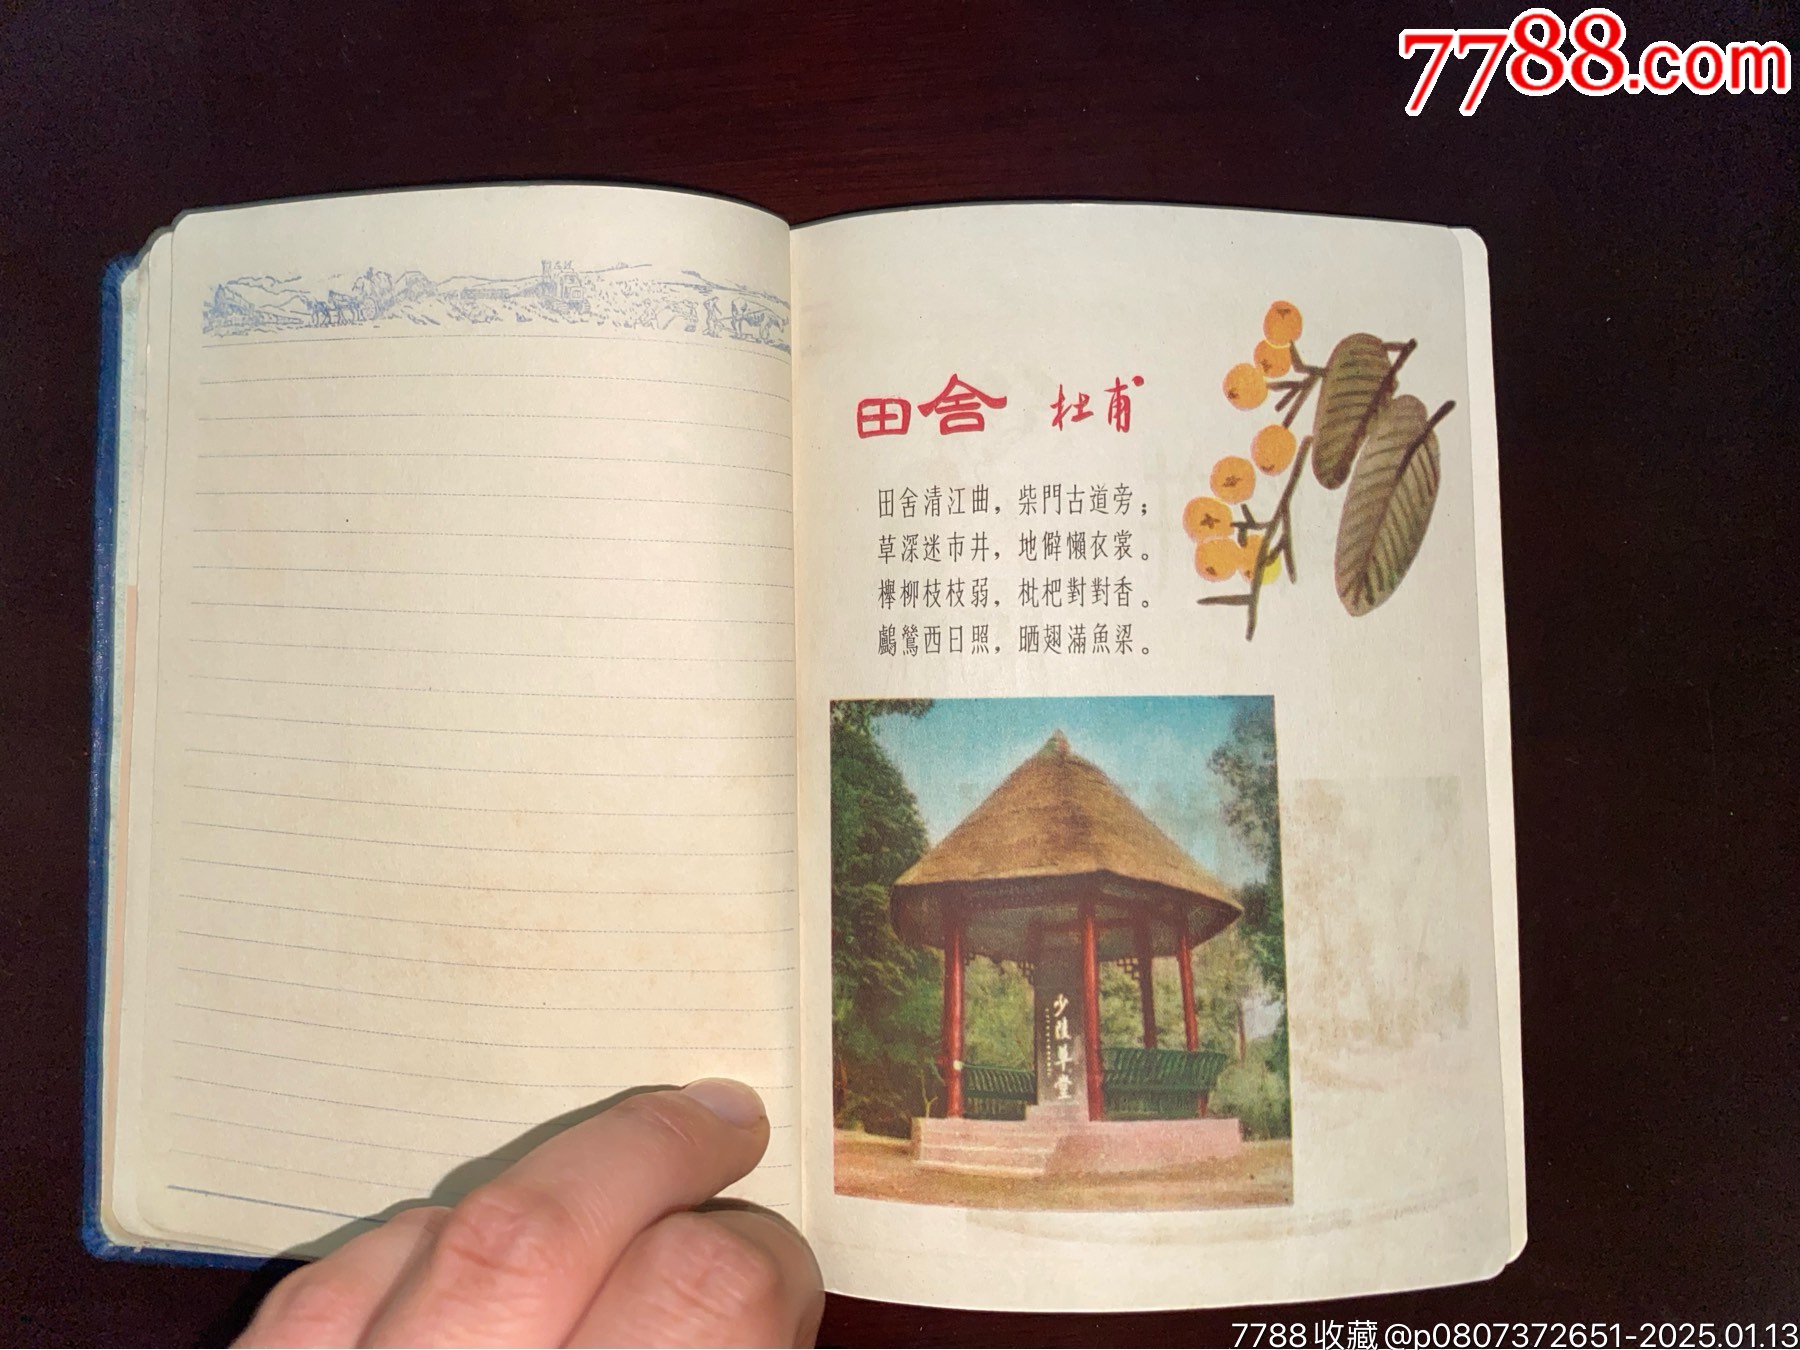 7788.com
田舍 杜甫
田舍清江曲，柴門古道旁；
草深迷市井，地僻懶衣裳。
櫸柳枝枝弱，枇杷對對香。
鸕鶿西日照，晒翅滿魚梁。
少陵草堂
7788收藏@p0807372651-2025.01.13